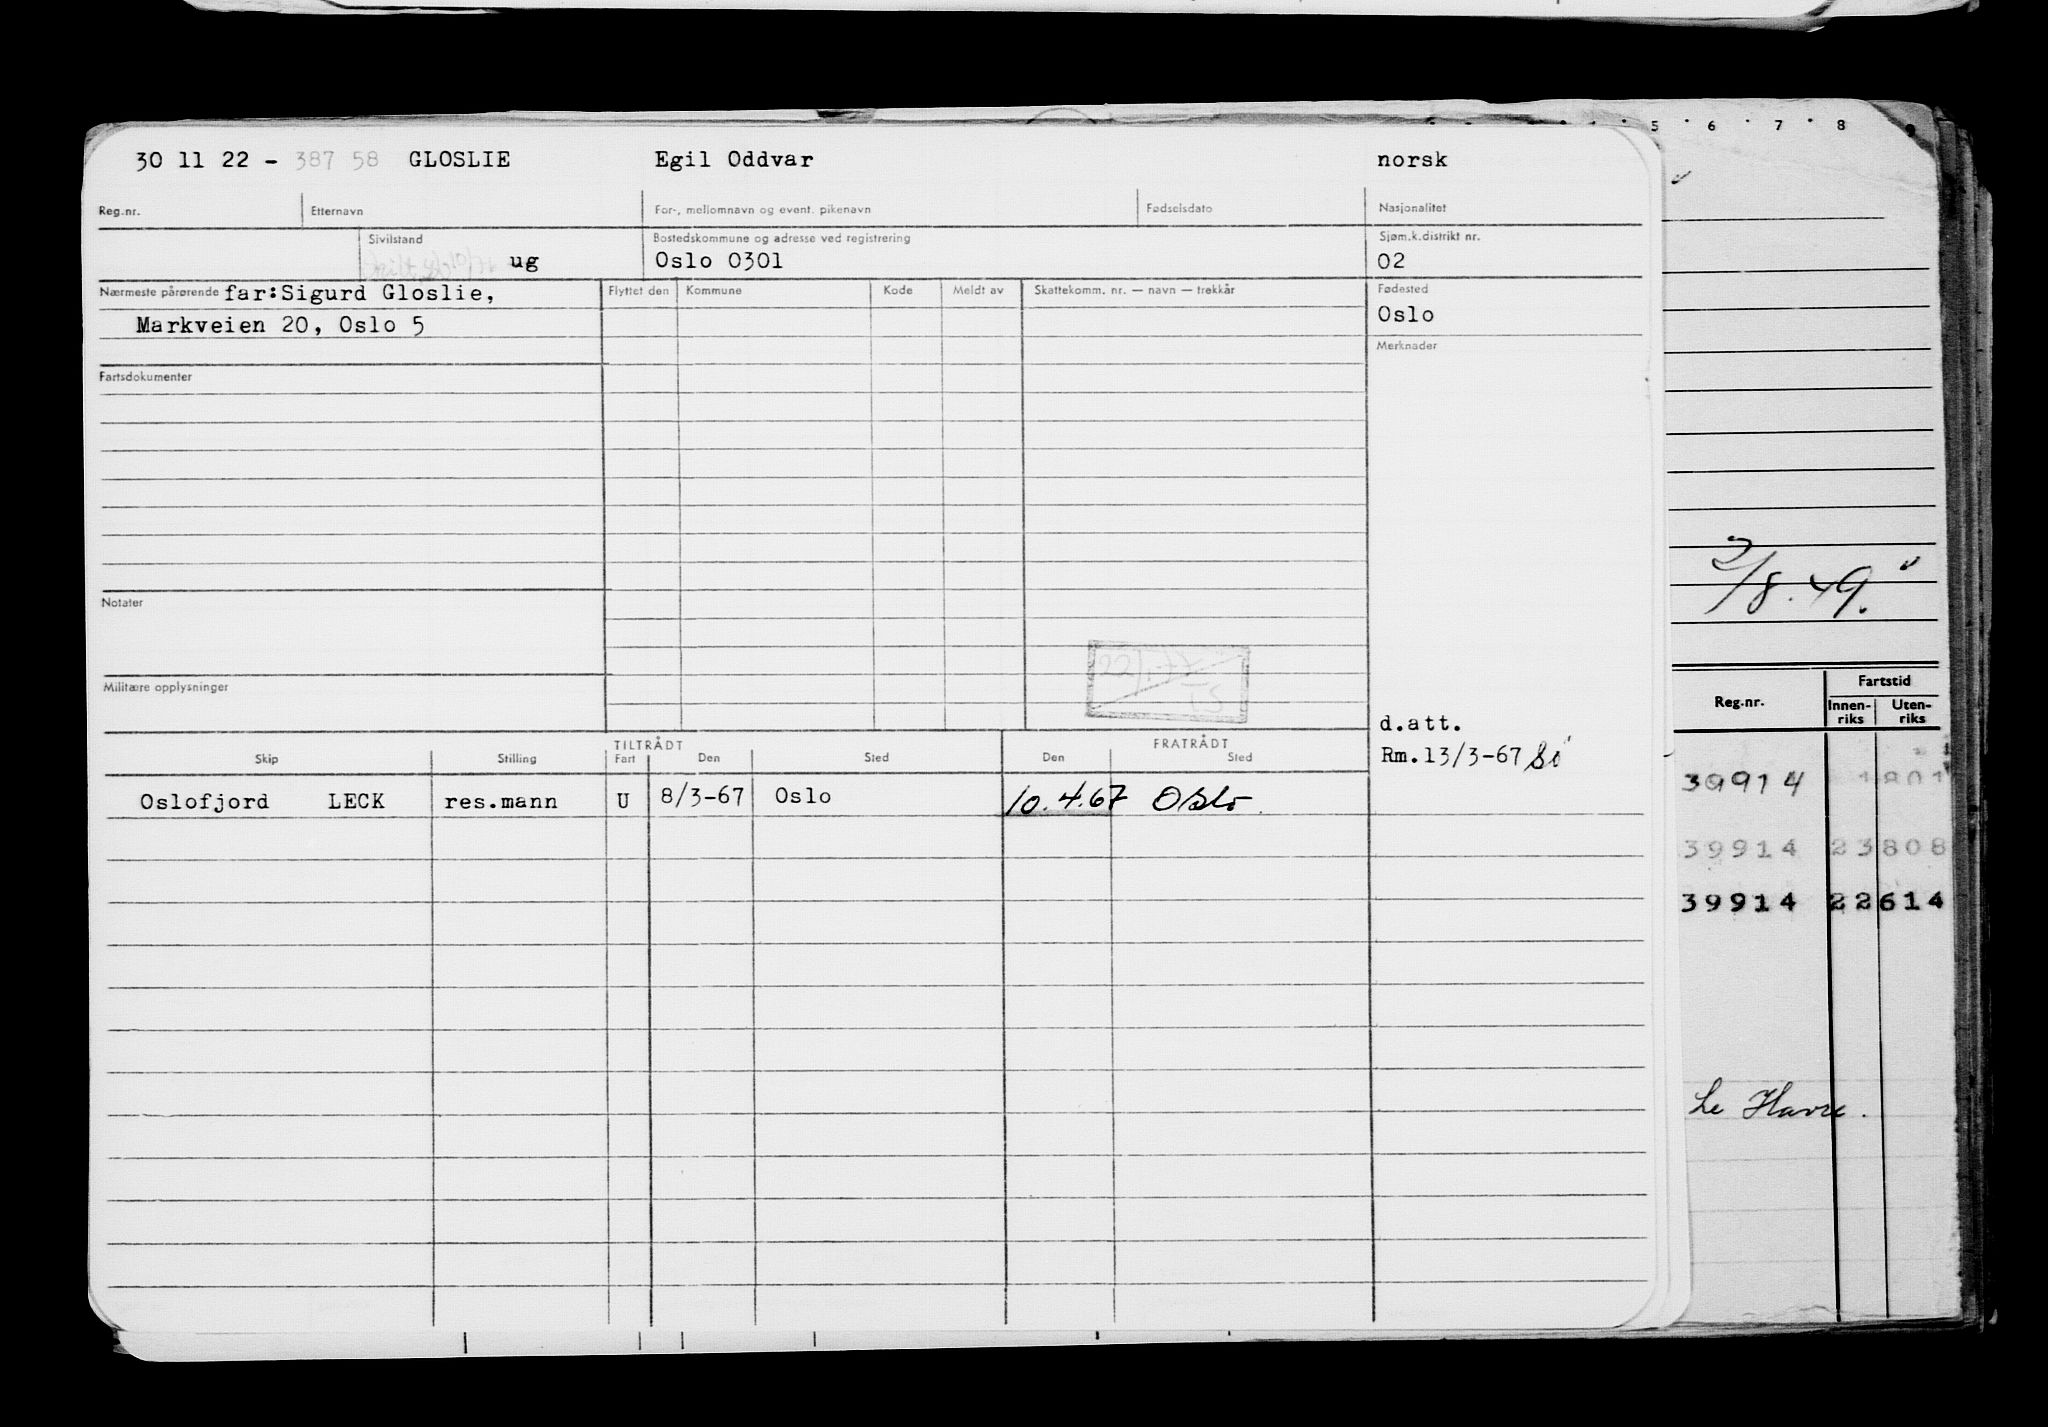 30 11 22 - 387 58 GLOSLIE Egil Oddvar norsk
Reg.nr. Etternavn For-, mellomnavn og event. pikenavn Fødselsdato Nasjonalitet
Sivilstand Bostedskommune og adresse ved registrering Sjøm.k.distrikt nr.
ug Oslo 0301 02
Nærmeste pårørende far:Sigurd Gloslie, Flyttet den Kommune Kode Meldt av Skattekomm. nr. — navn — trekkår Fødested
Markveien 20, Oslo 5 Oslo
Merknader
Fartsdokumenter
Notater
Militære opplysninger
d.att.
Rm.13/3-67 Sö
TILTRÅDT FRATRÅDT
Skip Stilling Fart Den Sted Den Sted
Oslofjord LECK res.mann U 8/3-67 Oslo 10.4.67 Oslo.
5 6 7 8 9
2/8.49.
Reg.nr. Fartstid
Innen-riks Uten-riks
39914 1801
39914 23808
39914 22614
Le Havre.